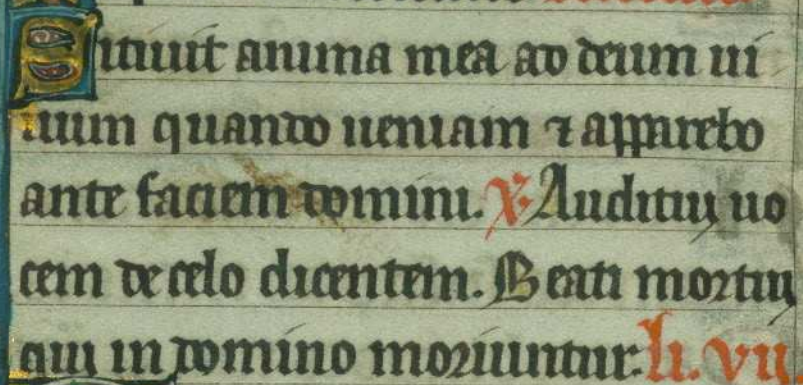 Sitiuit anima mea ad deum ui
uum quando ueniam ⁊ apparebo
ante faciem domini. V. Audiuij uo
cem de celo dicentem. Beati mortuj
quj in domino moriuntur. li. vij